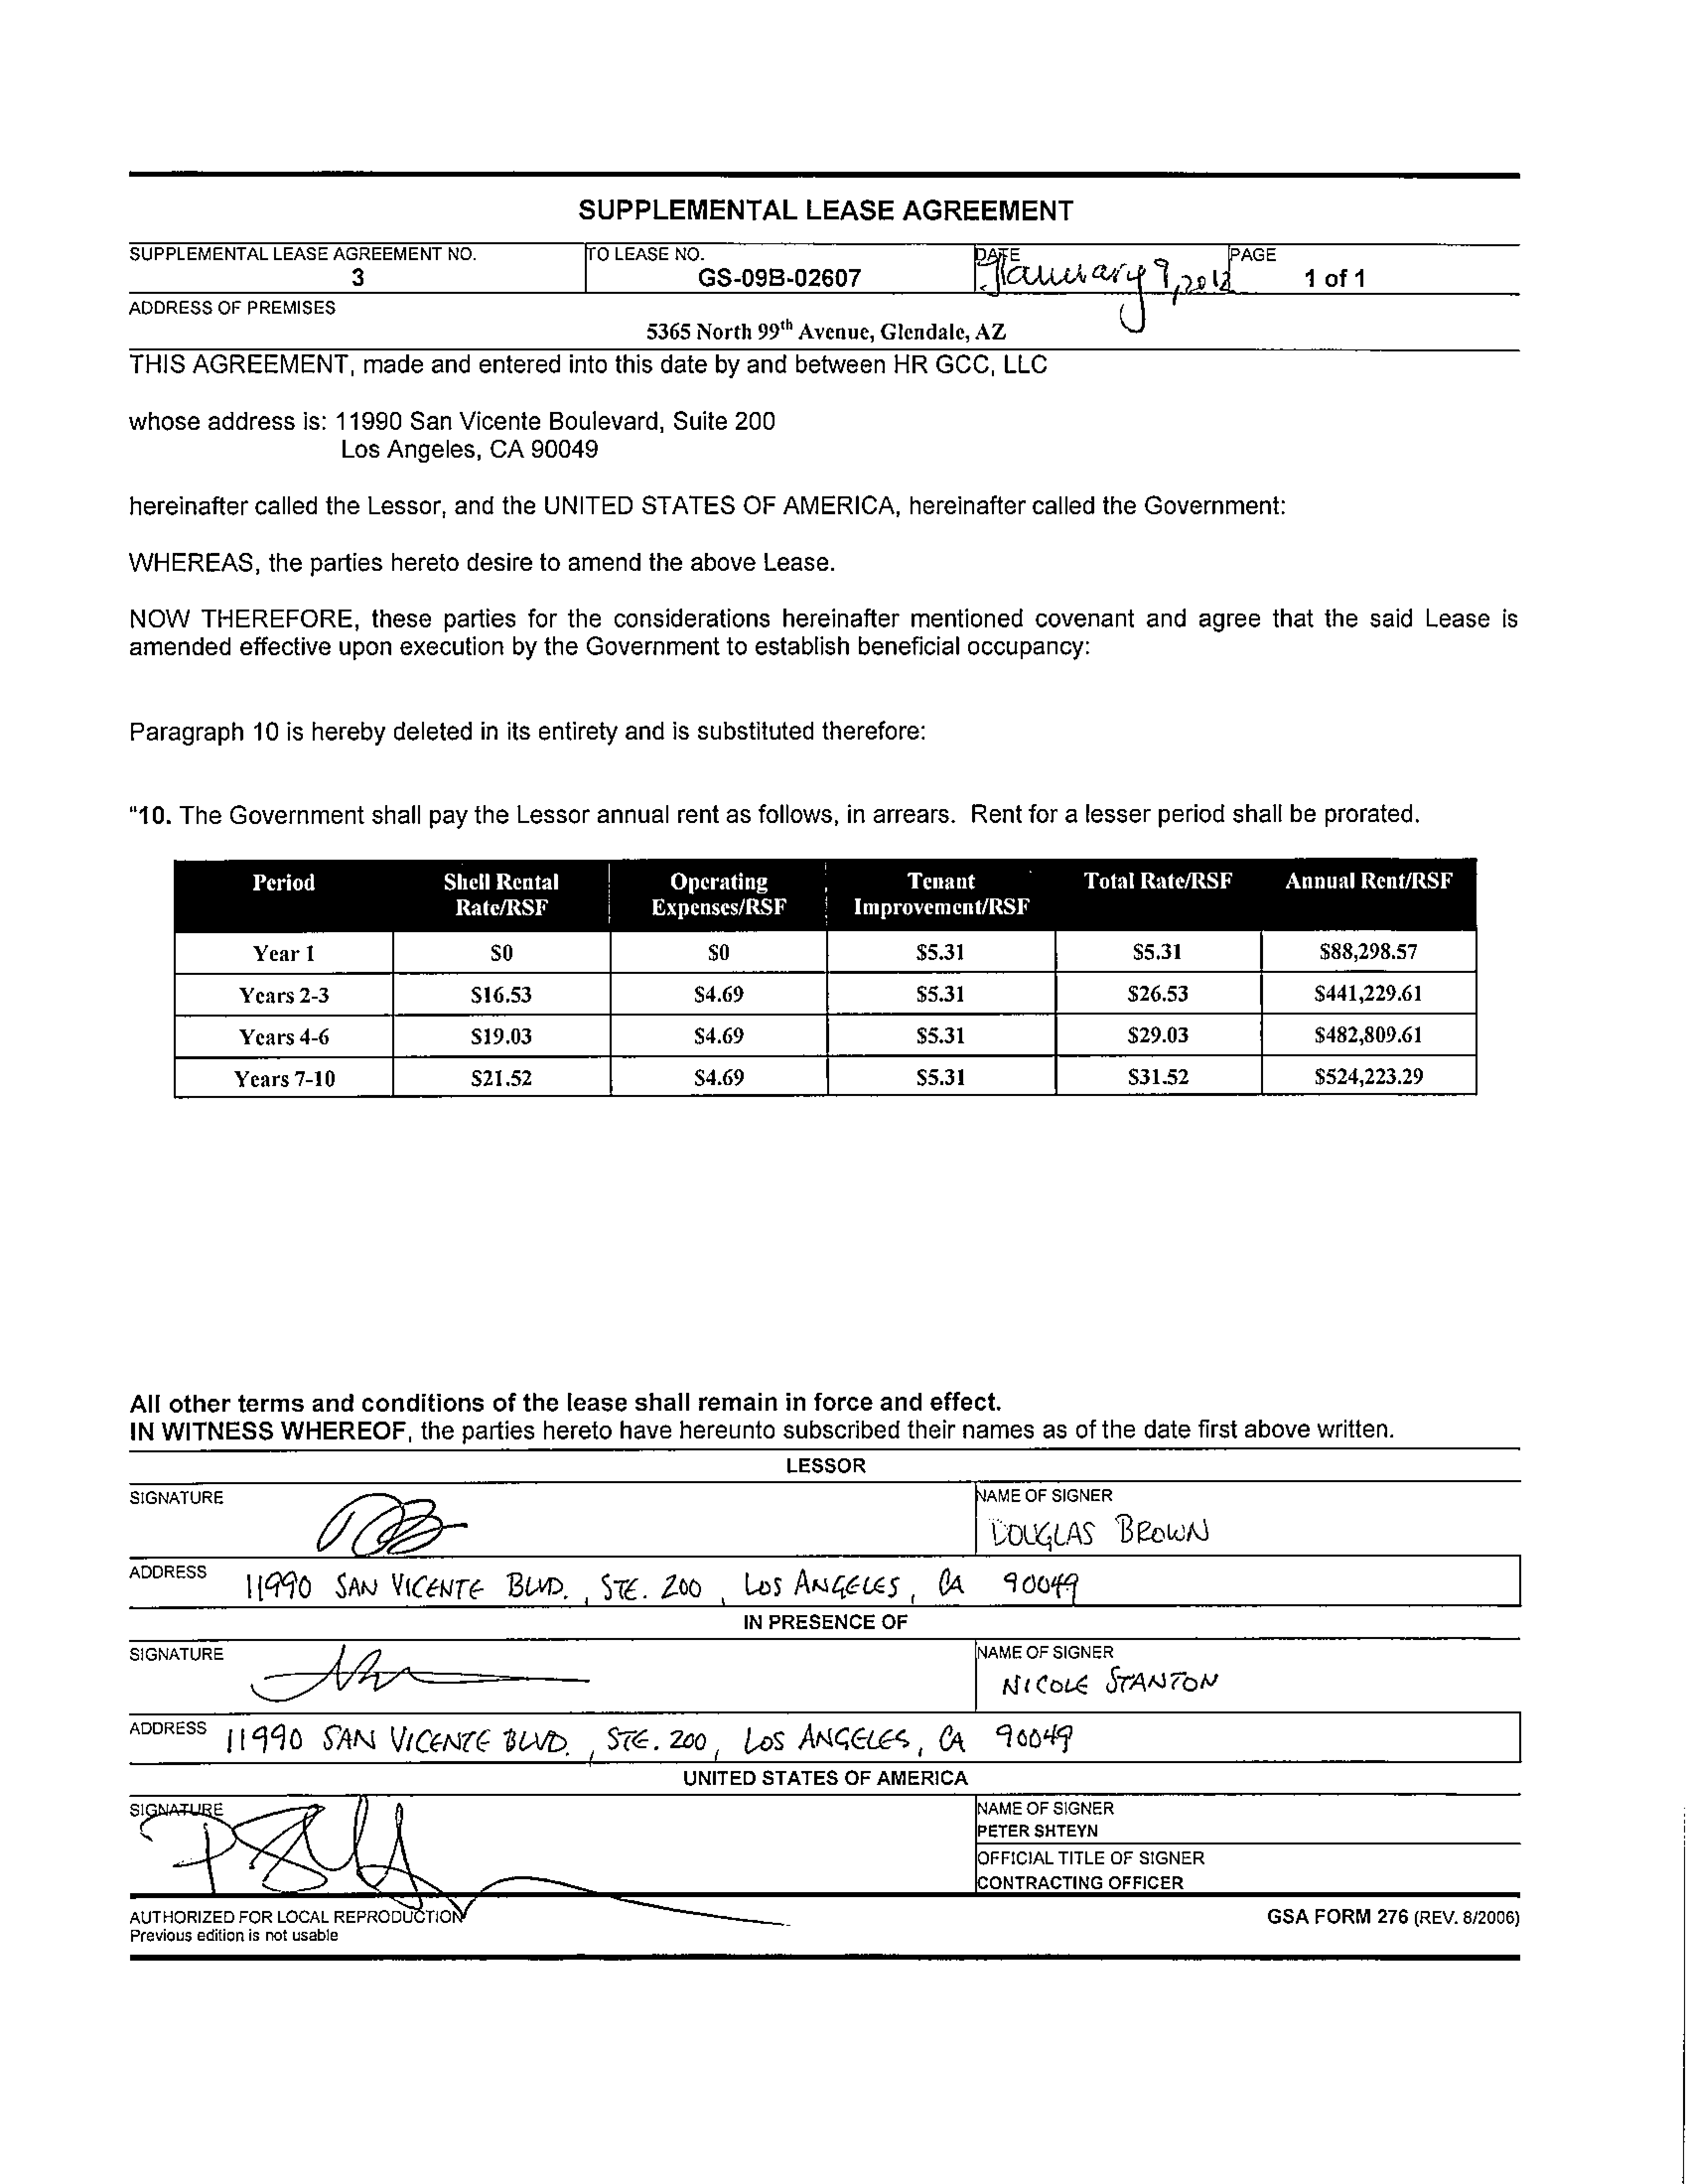 SUPPLEMENTAL LEASE AGREEMENT
SUPPLEMENTAL LEASE AGREEMENT NO. TO LEASE NO. DATE PAGE
3 GS-09B-02607 January 9, 2012 1 of 1
ADDRESS OF PREMISES
5365 North 99th Avenue, Glendale, AZ
THIS AGREEMENT, made and entered into this date by and between HR GCC, LLC
whose address is: 11990 San Vicente Boulevard, Suite 200
Los Angeles, CA 90049
hereinafter called the Lessor, and the UNITED STATES OF AMERICA, hereinafter called the Government:
WHEREAS, the parties hereto desire to amend the above Lease.
NOW THEREFORE, these parties for the considerations hereinafter mentioned covenant and agree that the said Lease is
amended effective upon execution by the Government to establish beneficial occupancy:
Paragraph 10 is hereby deleted in its entirety and is substituted therefore:
"10. The Government shall pay the Lessor annual rent as follows, in arrears. Rent for a lesser period shall be prorated.
Period Shell Rental Operating Tenant Total Rate/RSF Annual Rent/RSF
Rate/RSF Expenses/RSF Improvement/RSF
Year 1 $0 $0 $5.31 $5.31 $88,298.57
Years 2-3 $16.53 $4.69 $5.31 $26.53 $441,229.61
Years 4-6 $19.03 $4.69 $5.31 $29.03 $482,809.61
Years 7-10 $21.52 $4.69 $5.31 $31.52 $524,223.29
All other terms and conditions of the lease shall remain in force and effect.
IN WITNESS WHEREOF, the parties hereto have hereunto subscribed their names as of the date first above written.
LESSOR
SIGNATURE NAME OF SIGNER
DOUGLAS BROWN
ADDRESS 11990 SAN VICENTE BLVD., STE. 200, LOS ANGELES, CA 90049
IN PRESENCE OF
SIGNATURE NAME OF SIGNER
NICOLE STANTON
ADDRESS 11990 SAN VICENTE BLVD., STE. 200, LOS ANGELES, CA 90049
UNITED STATES OF AMERICA
SIGNATURE NAME OF SIGNER
PETER SHTEYN
OFFICIAL TITLE OF SIGNER
CONTRACTING OFFICER
AUTHORIZED FOR LOCAL REPRODUCTION GSA FORM 276 (REV. 8/2006)
Previous edition is not usable